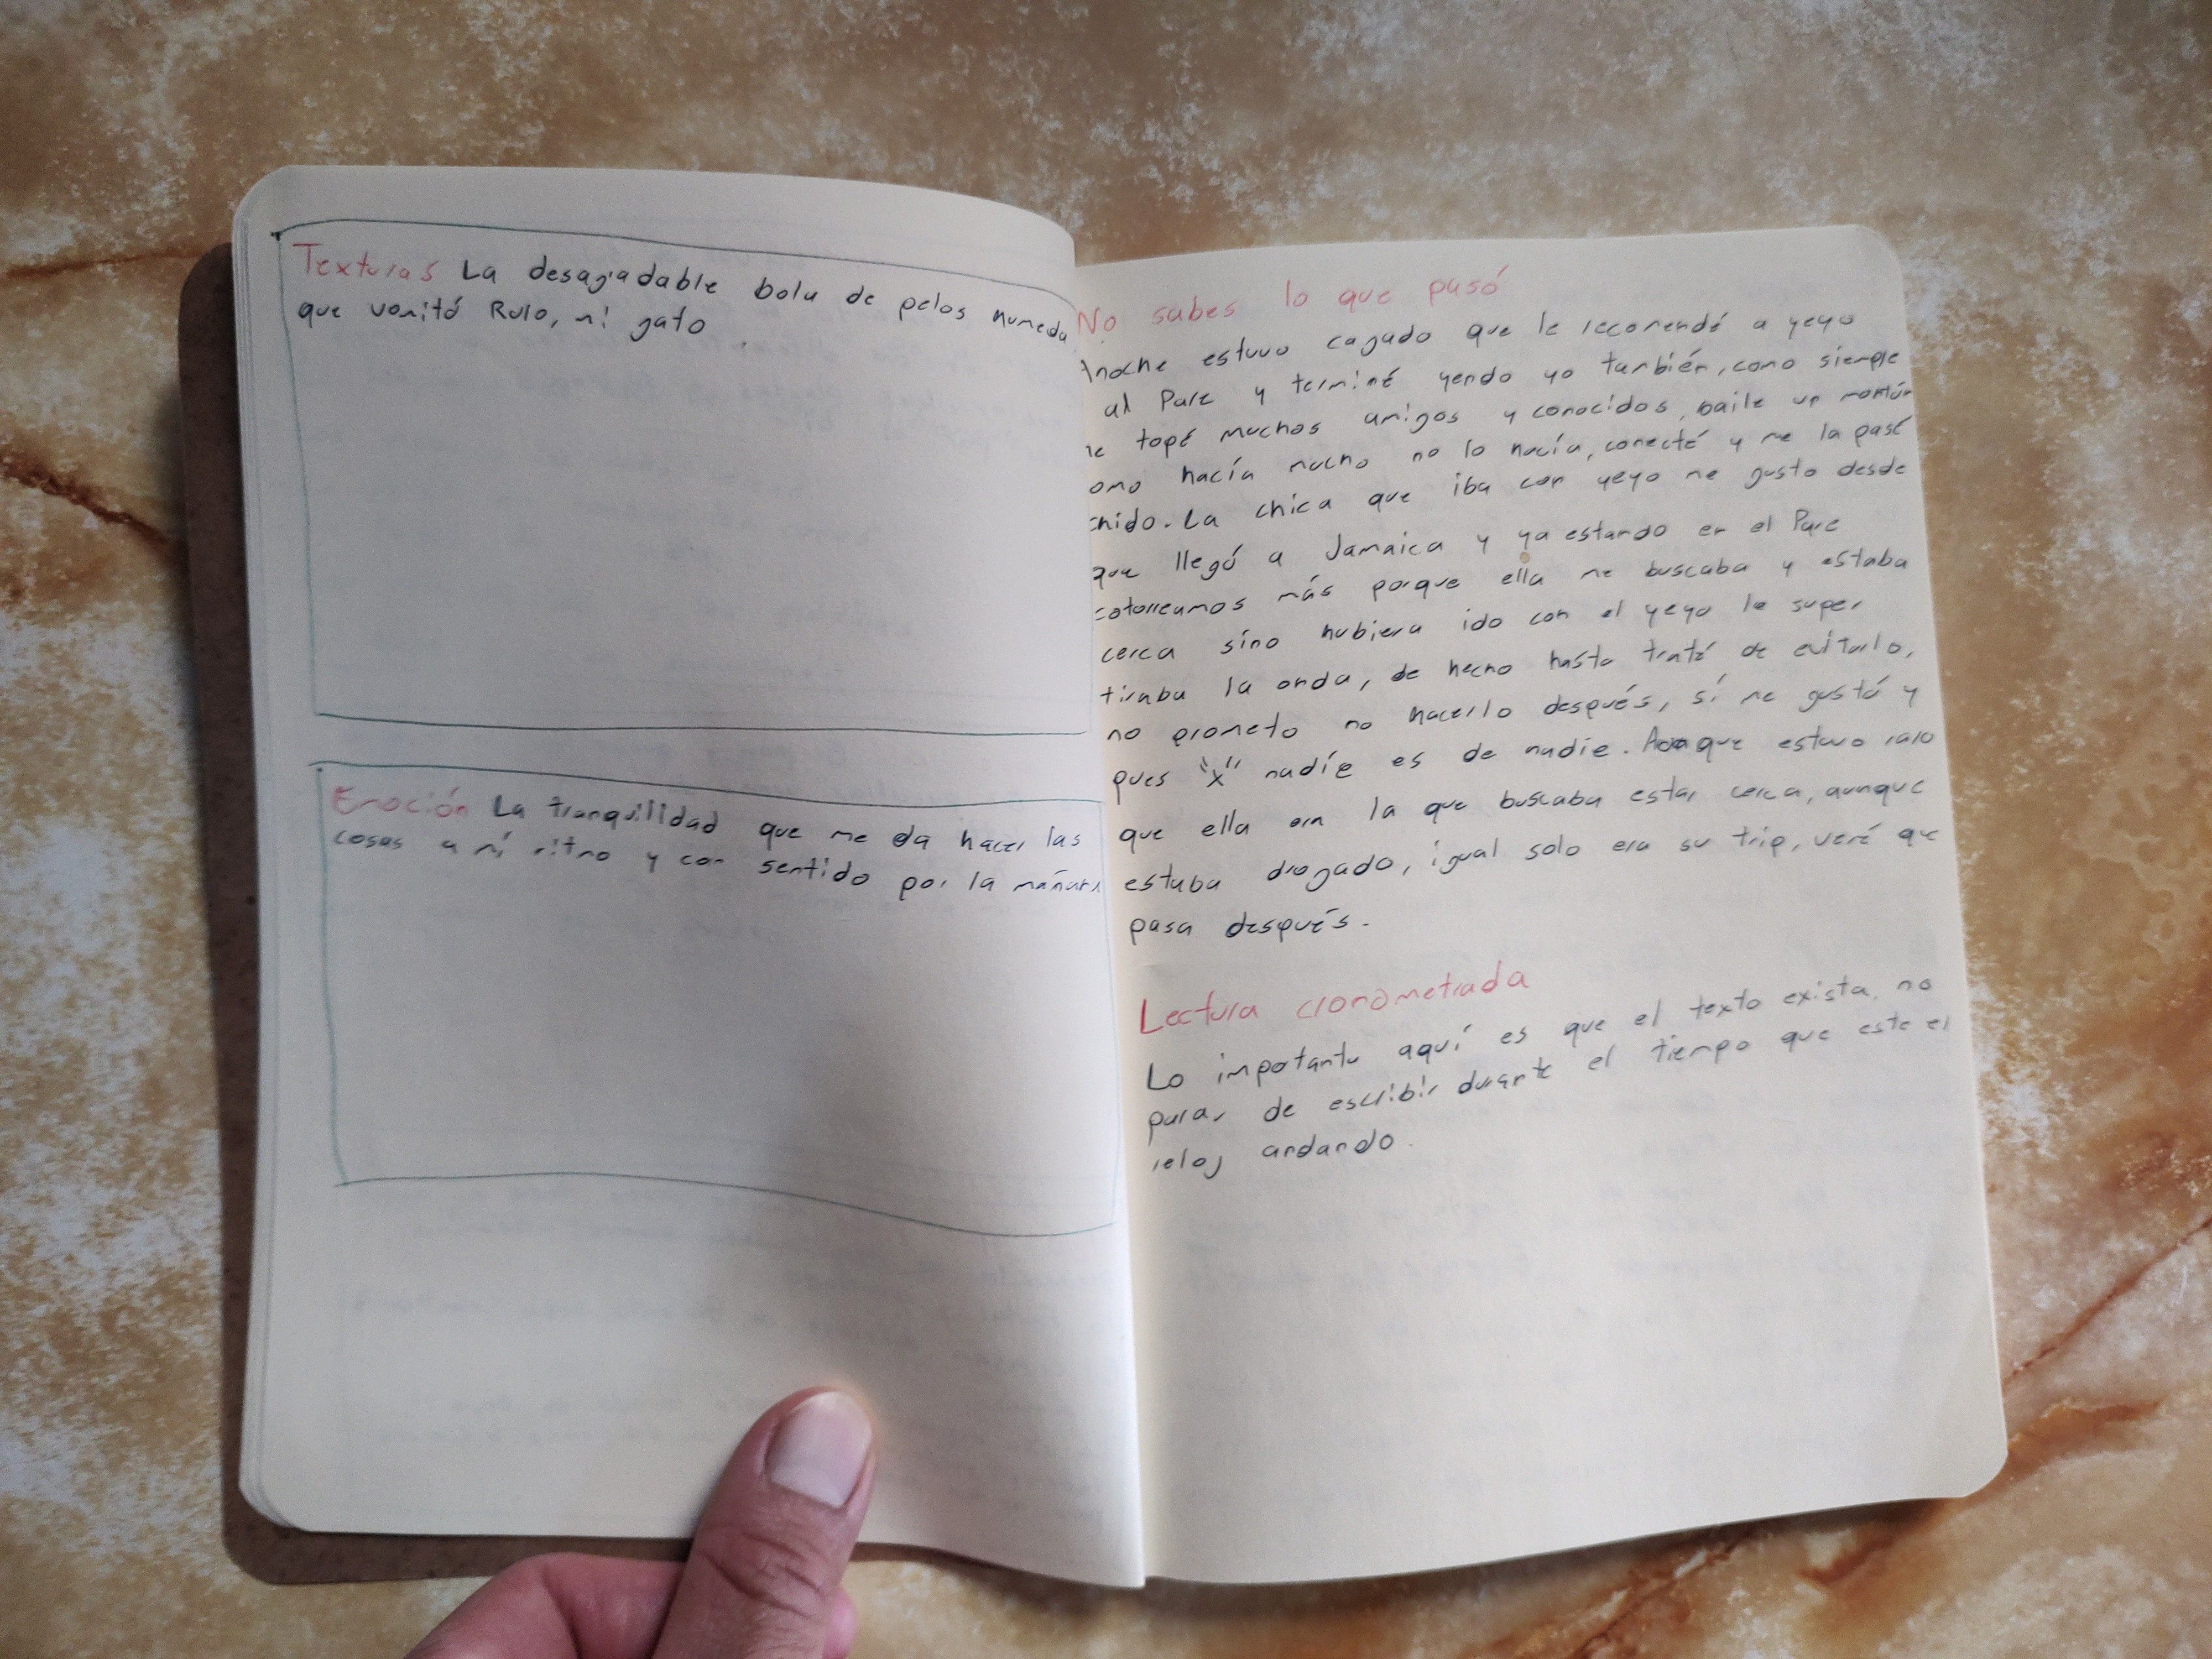 Texturas La desagradable bola de pelos humeda
que vomitó Rulo, mi gato
Emoción La tranquilidad que me da hacer las
cosas a mi ritmo y con sentido por la mañana
No sabes lo que pasó
Anoche estuvo cagado que le recomendé a yeyo
al Parc y terminé yendo yo también, como siempre
me topé muchos amigos y conocidos, baile un montón
como hacía mucho no lo hacía, conecté y me la pasé
chido. La chica que iba con yeyo me gusto desde
que llegó a Jamaica y ya estando en el Parc
cotorreamos más porque ella me buscaba y estaba
cerca sino hubiera ido con el yeyo le super
tiraba la onda, de hecho hasta traté de evitarlo,
no prometo no hacerlo después, sí me gustó y
pues "x" nadie es de nadie. Aunque estuvo raro
que ella era la que buscaba estar cerca, aunque
estaba drogado, igual solo era su trip, veré que
pasa después.
Lectura cronometrada
Lo importante aquí es que el texto exista, no
parar de escribir durante el tiempo que este el
reloj andando.